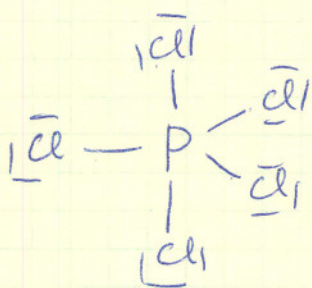 Cl
Cl
Cl P
Cl
Cl